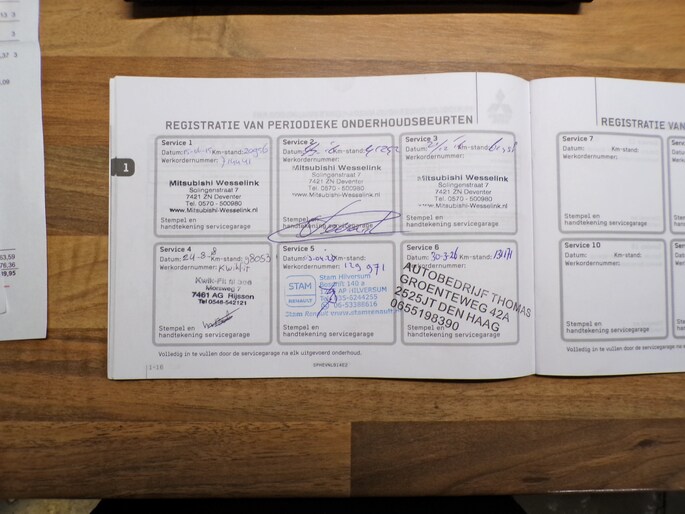 REGISTRATIE VAN PERIODIEKE ONDERHOUDSBEURTEN
1
Service 1
Datum: Km-stand:
Werkordernummer:
Mitsubishi Wesselink
Solingenstraat 7
7421 ZN Deventer
Tel. 0570 - 500980
www.Mitsubishi-Wesselink.nl
Stempel en
handtekening servicegarage
Service 2
Datum: Km-stand:
Werkordernummer:
Mitsubishi Wesselink
Solingenstraat 7
7421 ZN Deventer
Tel. 0570 - 500980
www.Mitsubishi-Wesselink.nl
Stempel en
handtekening servicegarage
Service 3
Datum: Km-stand:
Werkordernummer:
Mitsubishi Wesselink
Solingenstraat 7
7421 ZN Deventer
Tel. 0570 - 500980
www.Mitsubishi-Wesselink.nl
Stempel en
handtekening servicegarage
Service 4
Datum: Km-stand: 98053
Werkordernummer: Kwikfit
Morsweg 7
7461 AG Rijssen
Tel 0548-542121
Stempel en
handtekening servicegarage
Service 5
Datum: Km-stand:
Werkordernummer: 129 971
STAM
RENAULT
Stam Hilversum
AP HILVERSUM
Stam Renault
Stempel en
handtekening servicegarage
Service 6
Datum: Km-stand:
Werkordernummer:
AUTOBEDRIJF THOMAS
GROENTEWEG 42A
2525JT DEN HAAG
0655198390
Stempel en
handtekening servicegarage
Volledig in te vullen door de servicegarage na elk uitgevoerd onderhoud.
1-18
REGISTRATIE VAN
Service 7
Datum: Km-stand:
Werkordernummer:
Stempel en
handtekening servicegarage
Service 10
Datum: Km-stand:
Werkordernummer:
Stempel en
handtekening servicegarage
Volledig in te vullen door de se